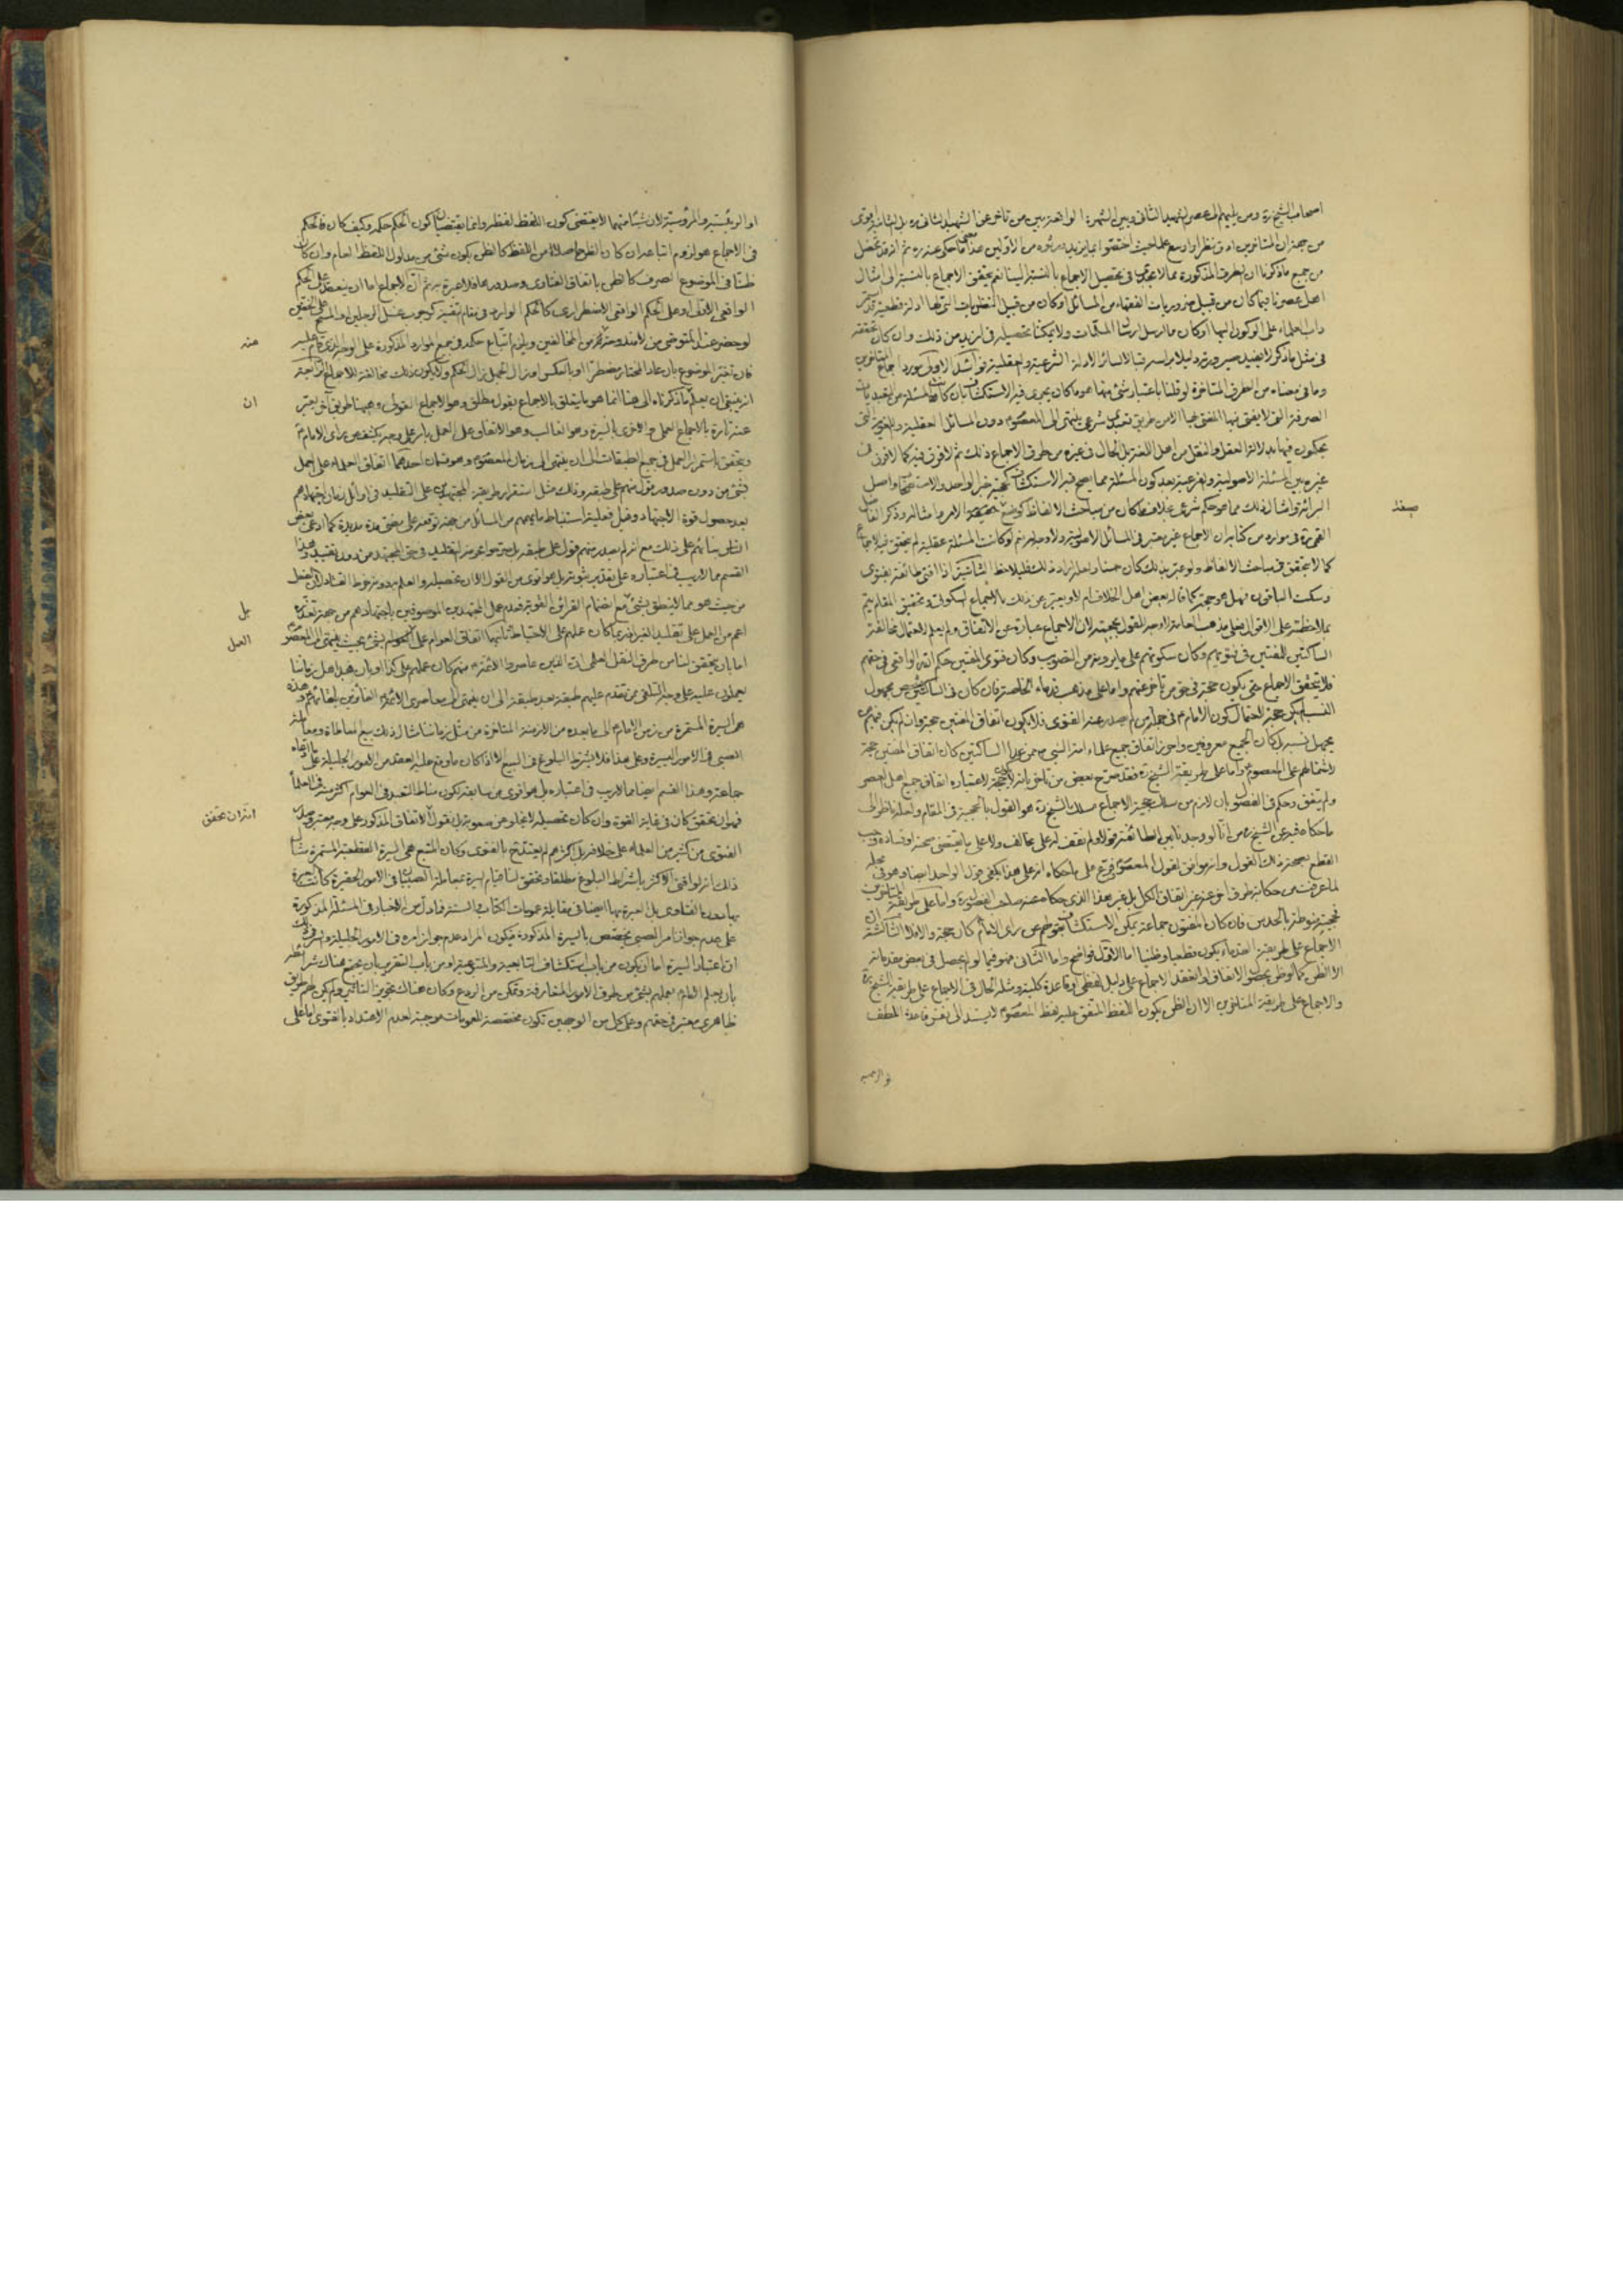 اصحاب الشيخ ره ومن يليهم الى عصر الشهيد الثانى وبين الشهرة الواقعة بين من تاخر عن الشهيد الثانى ره بل الثانية اقوى
من جهة ان المتاخرين ادق نظرا واوسع
من جميع ما ذكرنا ان الطرق المذكورة مما لا يمكن فى تحصيل الاجماع بالنسبة الينا نعم يتحقق الاجماع بالنسبة الى امثال
اهل عصرنا فيما كان من قبيل ضروريات الفقه او من المسائل او كان من قبيل النظريات التى لها ادلة قطعية
داب العلماء على الركون اليها او كان مما ارسل ارسال المسلمات ولا يمكننا تحصيله فى ازيد من ذلك وان كان
فى مثل ما ذكر لا يفيد صيرورته دليلا براسه قبالا لسائر الادلة الشرعية والعقلية
وما فى معناه من الطرق المتاخرة لو قلنا باعتبار شىء منها هو ما كان يجرى فيه الاستكشاف بان كانت المسئلة من التعبديات
الصرفة التى لا يتفق فيها المتفق الا من طريق تعبدى شرعى ينتهى الى المعصوم دون المسائل العقلية واللغوية التى
يحكمون فيها بدلالة العقل والنقل من اهل اللغة بل الحال فى غيره من طرق الاجماع ذلك ثم لا فرق فيه كما لا فرق فى
غيره بين المسئلة الاصولية والفرعية بعد كون المسئلة مما يصح فيه الاستكشاف كحجية خبر الواحد والاستصحاب واصل
البرائة وامثال ذلك مما هو حكم شرعى بخلاف ما كان من مباحث الالفاظ كوضع صيغة الامر وامثاله وذكر الفاضل
صيغة
القمى ره فى موارد من كتابه ان الاجماع غير معتبر فى المسائل الاصولية ولا وجه له نعم لو كانت المسئلة عقلية لم يتحقق فيه الاجماع
كما لا يتحقق فى مباحث الالفاظ ولو عبر بذلك كان حسنا ولعله اراد ذلك فليلاحظ الثانية اذا افتى طائفة بفتوى
وسكت الباقون فهل هو حجة كما قاله بعض اهل الخلاف ام لا ويعبر عن ذلك بالاجماع السكوتى وتحقيق المقام يتم
بملاحظته على الاقوال فعلى مذهب العامة لا وجه للقول بحجيته لان الاجماع عبارة عن الاتفاق ولم يعلم لاحتمال مخالفة
الساكتين للمفتين فى فتويهم وكان سكوتهم على ما يرونه من التصويب وكان فتوى المفتين حكم الله الواقعى فى حقهم
فلا يتحقق الاجماع حتى يكون حجة فى حق من تاخر عنهم واما على مذهب قدماء الخاصة فان كان فى الساكتين شخص مجهول
النسب لم يكن حجة لاحتمال كون الامام ع فى جملة من لم يصدر عنه الفتوى فلا يكون اتفاق المفتين حجة وان لم يكن فيهم من
يجهل نسبه بل كان الجميع معروفين واحرز اتفاق جميع علماء امة النبى ص ممن عدا الساكتين كان اتفاق المفتين حجة
لاشتمالهم على المعصوم ع واما على طريقة الشيخ ره فقد صرح بعض من تاخر بانه لا حجة لاعتباره اتفاق جميع اهل العصر
ولم يتفق وحكم فى الفصول بان لازم من سلك فى حجية الاجماع مسلك الشيخ ره هو القول بالحجية فى المقام ولعله ناظر الى
ما حكاه فيه عن الشيخ ره من انا لو وجدنا بين الطائفة قولا ولم نقف له على مخالف ولا على ما يقتضى صحته او فساده وجب
القطع بصحة ذلك القول وانه موافق لقول المعصوم
لما عرفت من حكاية طرق
فحجية منوطة بالحدس فان كان المفتون جماعة يمكن الاستكشاف بقولهم عن راى الامام ع كان حجة والا فلا الثالثة
الاجماع على طريقة القدماء يكون قطعيا وظنيا اما الاول فواضح واما الثانى فهو فيما لو لم يحصل فى بعض مقدماته
الا الظن كما لو ظن بحصول الاتفاق او انعقد الاجماع على دليل لفظى او قاعدة كلية ومثله الحال فى الاجماع على طريقة الشيخ ره
والاجماع على طريقة المتاخرين الا ان الظن بكون اللفظ المتفق عليه لفظ المعصوم ع لا يستند الى نفس قاعدة اللطف
او الرئيسية والمرؤسية لان شيئا منهما لا يقتضى كون اللفظ لفظه وانما يقتضيان كون الحكم حكمه وكيف كان فالحكم
فى الاجماع هو لزوم اتباعه ان كان الظن حاصلا من اللفظ كالظن بكون شىء من مدلول اللفظ العام وان كان
ظنا فى الموضوع الصرف كالظن باتفاق الفتاوى وصدورها فلا عبرة به ثم ان الاجماع اما ان ينعقد على الحكم
الواقعى الاولى او على الحكم الواقعى الاضطرارى كالحكم الوارد فى مقام التقية كوجوب غسل الرجلين او المسح على الخفين
لو حضر عند المتوضى من لا بد من التقية منه من المخالفين ويلزم اتباع حكمه فى جميع الموارد المذكورة على الوجه الذى قام عليه
منه
فان تغير الموضوع بان عاد المختار مضطرا او بالعكس او زال الجهل زال الحكم ولا يكون ذلك مخالفة للاجماع
انه ينبغى ان يعلم ان ما ذكرناه الى هنا انما هو ما يتعلق بالاجماع بقول مطلق وهو الاجماع القولى وهيهنا طريق آخر يعبر
ان
عنه تارة بالاجماع العملى والاخرى بالسيرة وهو الغالب وهو الاتفاق على العمل بامر على وجه يكشف عن راى الامام ع
ويتحقق باستمرار العمل فى جميع الطبقات الى ان ينتهى الى زمان المعصوم ع وهو قسمان احدهما اتفاق العلماء على العمل
بشىء من دون صدور قول منهم على طبقه وذلك مثل استقرار طريقة المجتهدين على التقليد فى اوائل زمان اجتهادهم
بعد حصول قوة الاجتهاد وقبل فعلية استنباط ما يهمهم من المسائل من جهة توقفه على مضى مدة مديدة كما ادعى بعض
الناس بنائهم على ذلك مع انه لم يصدر منهم قول على طبقه بل صرحوا بحرمة التقليد فى حق المجتهد من دون تقييد وهذا
القسم مما لا ريب فى اعتباره على تقدير ثبوته بل هو اقوى من القول الا ان تحصيله والعلم به دونه خرط القتاد لان الفعل
من حيث هو مما لا ينطق بشىء مع انضمام القرائن القوية فعدم عمل المجتهدين الموصوفين باجتهادهم من جهة تعذره
بل
اعم من العمل على تقليد الغير اذ ربما كان عملهم على الاحتياط ثانيهما اتفاق العوام على العمل بشىء بحيث ينتهى الى المعصوم ع
العمل
اما بان يتحقق لنا من طرق النقل العلمى ان الذين عاصروا الائمة ع منهم كان عملهم على كذا او بان هذا اهل زماننا
يعملون عليه على وجه التلقى ممن تقدم عليهم طبقة بعد طبقة الى ان ينتهى الى معاصرى الائمة ع الفائزين بلقائهم وهذه
هى السيرة المستمرة من زمن الامام ع الى ما بعده من الازمنة المتاخرة من مثل زماننا مثال ذلك بيع المعاطاة ومعاملة
الصبى فى الامور اليسيرة وعلى هذا فلا يشترط البلوغ فى البيع الا اذا كان ما وقع عليه العقد من الامور الجليلة
جماعة وهذا القسم ايضا مما لا ريب فى اعتباره بل هو اقوى من سابقه لكون مناط التعبد فى العوام اكثر منه فى العلماء
فهو ان تحقق كان فى غاية القوة وان كان تحصيله لا يخلو عن صعوبة بل نقول ان الاتفاق المذكور على وجه معتبر
اذ ان تحقق
الفتوى من كثير من العلماء على خلافه بل اكثرهم لم يعتد ح بالفتوى وكان المتبع هى السيرة القطعية المستمرة مثال
ذلك انه لو افتى الاكثر باشتراط البلوغ مطلقا وتحقق لنا قيام السيرة بمعاملة الصبيان فى الامور الحقيرة كانت العبرة
بها دون الفتاوى بل العبرة بها ايضا فى مقابلة عمومات الكتاب والسنة فما دل من الاخبار فى المسئلة المذكورة
على عدم جواز امر الصبى يخصص بالسيرة المذكورة فيكون المراد عدم جواز امره فى الامور الجليلة
ان اعتبار السيرة اما ان يكون من باب استكشاف التابعية والمتبوعية او من باب التقرير بان يجتمع هناك شرائطه
بان يعلم الامام ع بعملهم بشىء من طرق الامور المتعارفة وتمكن من الردع وكان هناك تجويز التاثير ولم يكن لهم طريق
ظاهرى معتبر فى حقهم وعلى كل من الوجهين تكون مخصصة للعمومات موجبة لعدم الاعتداد بالفتوى
او الرئيسية